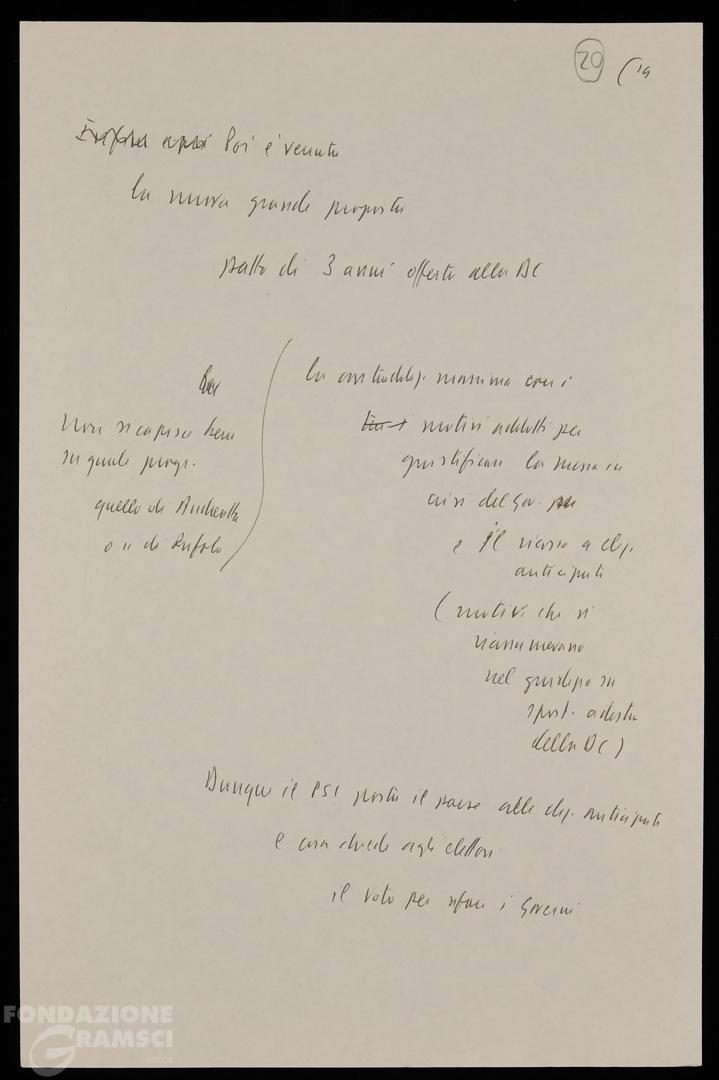 20 (19
Poi è venuta
la nuova grande proposta
patto di 3 anni offerto alla DC
la contraddiz. massima con i
motivi addotti per
giustificare la messa in
crisi del gov.
e il ricorso a elez.
anticipate
(motivi che si
riassumevano
nel giudizio su
spost. a destra
della DC)
Non si capisce bene
su quale progr.
quello di Andreatta
o u di Rufolo
Dunque il PSI porta il paese alle elez. anticipate
e cosa chiede agli elettori
il voto per rifare i Governi
FONDAZIONE
GRAMSCI
onlus